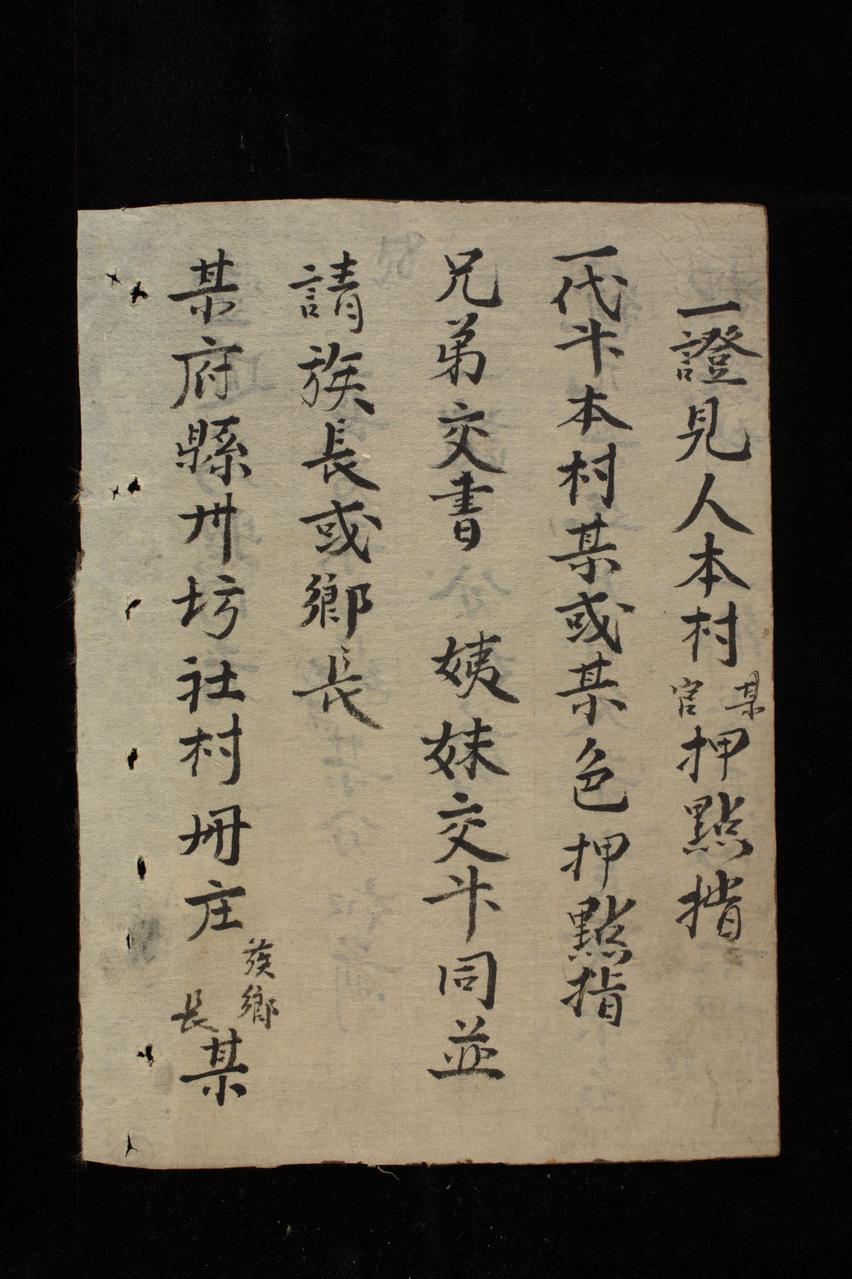 一證見人本村某官押點指
一代斗本村某或某色押點指
兄弟交書 姨妹交斗同並
請族長或鄉長
某府縣州坊社村冊庄族鄉長某